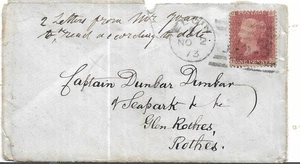 2 Letters from Miz
to read according to date
NO 2
73
Captain Dunbar Dunbar
of Seapark &c &c
Glen Rothes,
Rothes.